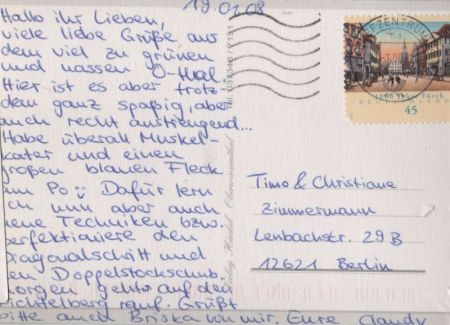 19.01.08
Hallo ihr Lieben,
viele liebe Grüße aus
dem viel zu grünen
und nassen O-thal
Hier ist es aber trotz-
dem ganz spaßig, aber
auch recht anstrengend...
Habe überall Muskel-
kater und einen
großen blauen Fleck
am Po Dafür lern
ich nun aber auch
neue Techniken bzw.
perfektioniere den
Diagonalschritt und
den Doppelstockschub.
Morgen gehts auf den
Fichtelberg rauf. Grüßt
bitte auch Briska von mir. Eure Claudy
Oberwiesenthal
ZENTRUM
1000 Jahre Fürth
DEUTSCHLAND
45
Timo & Christiane
Zimmermann
Lenbachstr. 29B
12621 Berlin